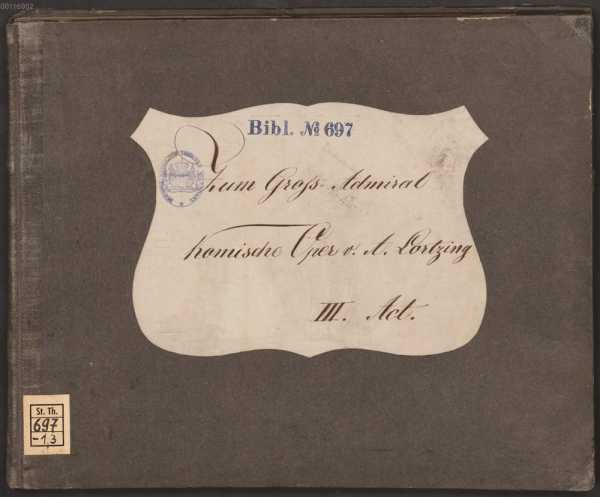 00116002
Bibl. № 697
Zum Groß-Admiral
Komische Oper v. A. Lortzing
III. Act.
St. Th.
697
-1,3